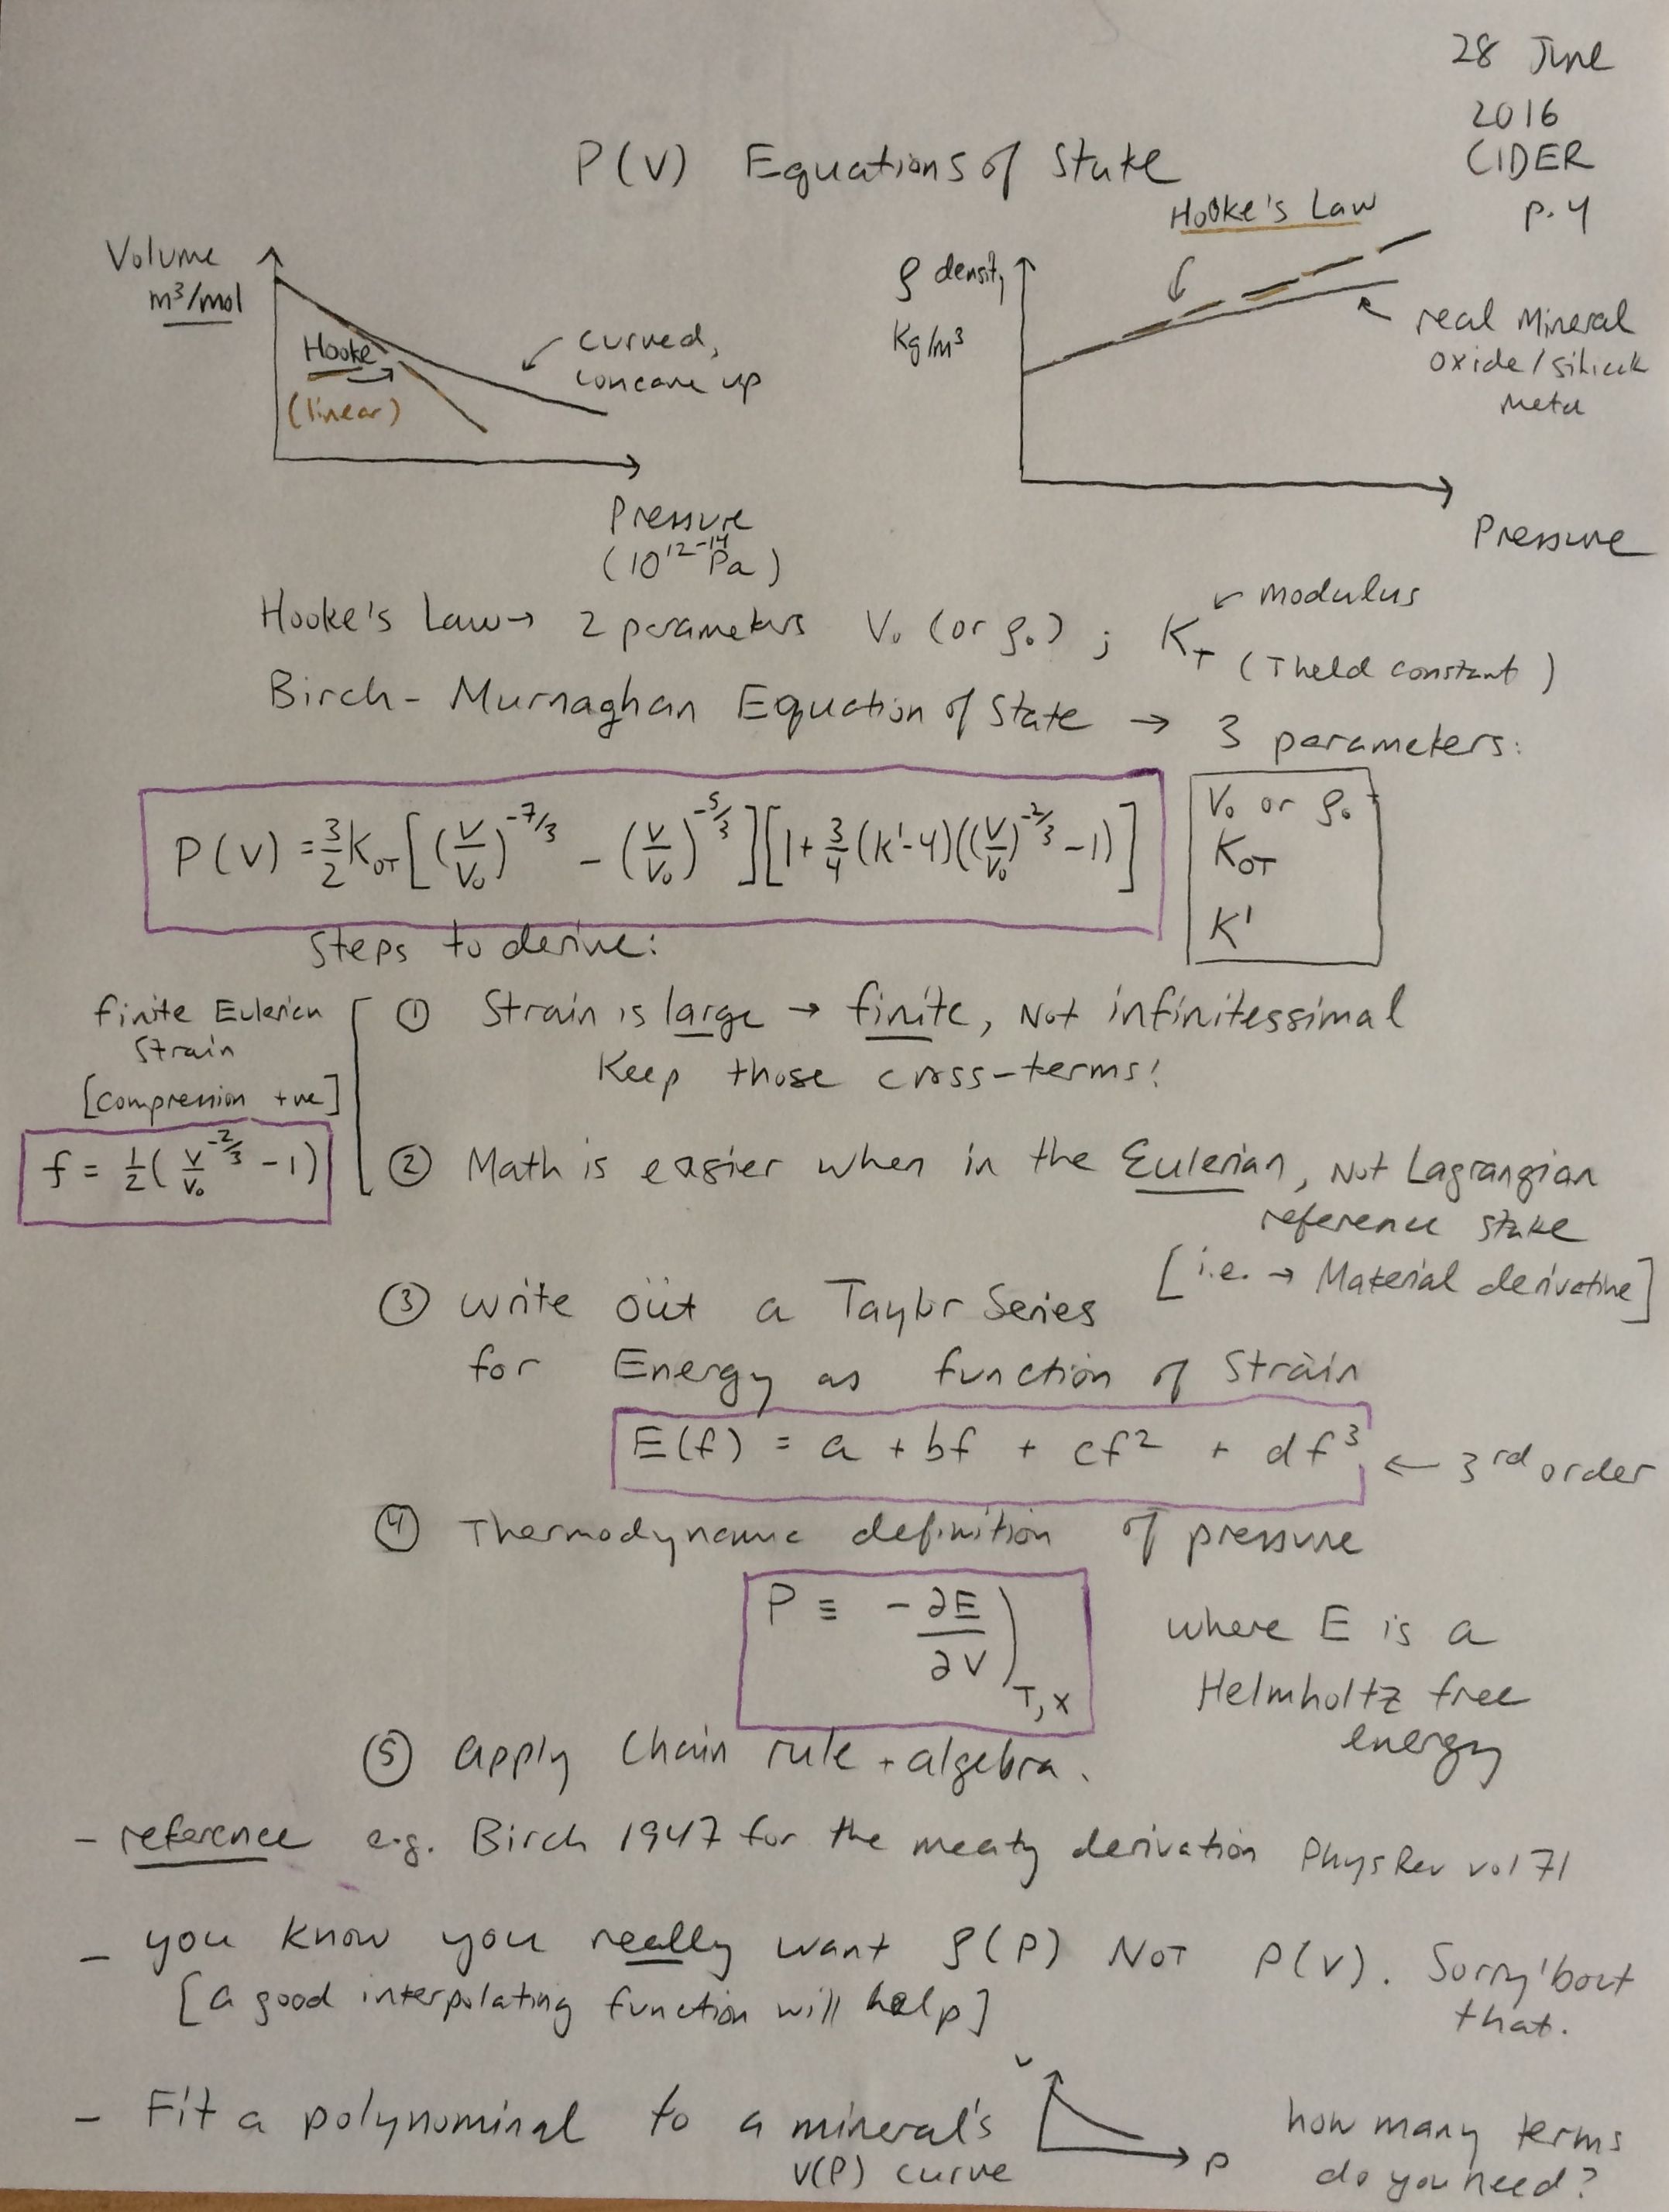 28 June
2016
CIDER
p. 4
P(V) Equations of State
Volume
m³/mol
Hooke
(linear)
curved,
concave up
Pressure
(10¹²⁻¹⁴ Pa)
Hooke's Law
ρ density
Kg/m³
real Mineral
oxide/silicate
metal
Pressure
Hooke's Law → 2 parameters V₀ (or ρ₀) ; K_T (T held constant)
modulus
Birch-Murnaghan Equation of State → 3 parameters:
P(V) = 3/2 K₀T [(V/V₀)^-7/3 - (V/V₀)^-5/3][1 + 3/4 (K'-4)((V/V₀)^-2/3 - 1)]
V₀ or ρ₀
K₀T
K'
Steps to derive:
finite Eulerian
strain
[compression +ve]
f = 1/2 (V/V₀^-2/3 - 1)
① Strain is large → finite, Not infinitessimal
Keep those cross-terms!
② Math is easier when in the Eulerian, Not Lagrangian
reference state
[i.e. → Material derivative]
③ write out a Taylor Series
for Energy as function of Strain
E(f) = a + bf + cf² + df³ ← 3rd order
④ Thermodynamic definition of pressure
P ≡ -∂E/∂V)T,X
where E is a
Helmholtz free
energy
⑤ apply Chain rule + algebra.
- reference e.g. Birch 1947 for the meaty derivation Phys Rev vol 71
- you know you really want ρ(P) NOT P(V). Sorry 'bout
that.
[a good interpolating function will help]
- Fit a polynominal to a mineral's
V(P) curve
V
P
how many terms
do you need?